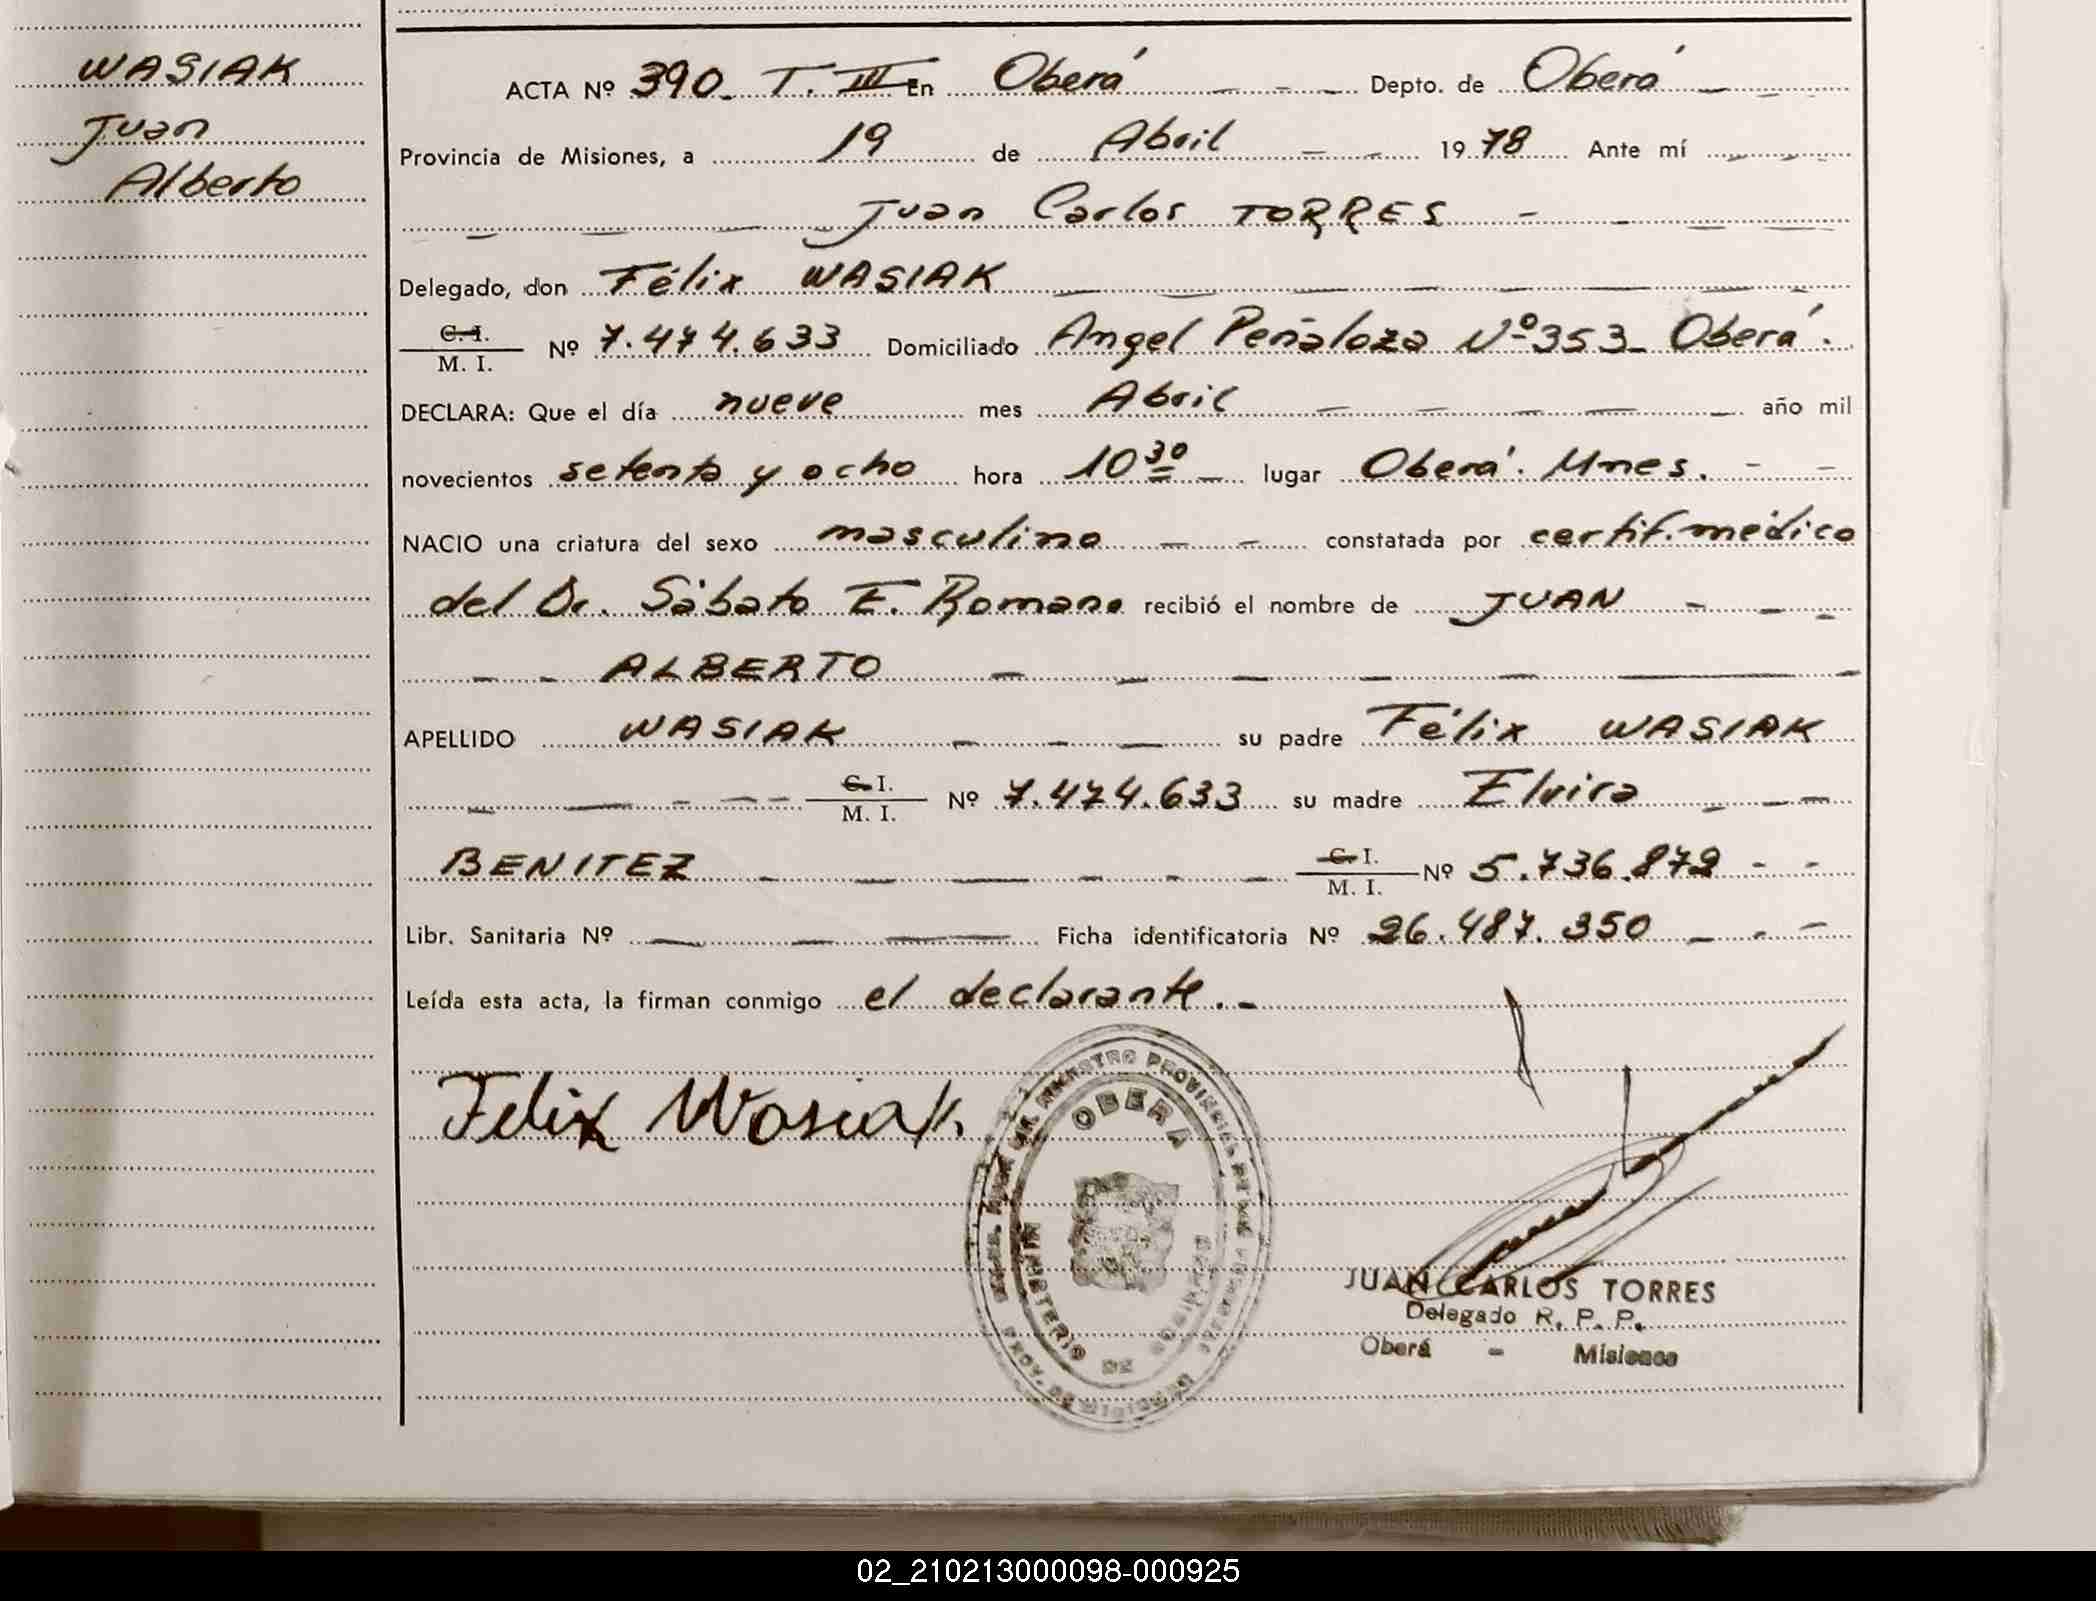 WASIAK
Juan
Alberto
ACTA Nº 390. T. III En Oberá Depto. de Oberá
Provincia de Misiones, a 19 de Abril 1978 Ante mí
Juan Carlos TORRES
Delegado, don Félix WASIAK
C. I.
M. I. Nº 7.474.633 Domiciliado Angel Peñaloza Nº 353 Oberá.
DECLARA: Que el día nueve mes Abril año mil
novecientos setenta y ocho hora 10 30 lugar Oberá. Mnes.
NACIO una criatura del sexo masculino constatada por certif. médico
del Dr. Sábato E. Romano recibió el nombre de JUAN
ALBERTO
APELLIDO WASIAK su padre Félix WASIAK
C. I.
M. I. Nº 7.474.633 su madre Elvira
BENITEZ C. I.
M. I. Nº 5.736.872
Libr. Sanitaria Nº Ficha identificatoria Nº 26.487.350
Leída esta acta, la firman conmigo el declarante.
Felix Wasiak.
PROVINCIAL DE
OBERA
MINISTERIO DE GOBIERNO
PROV. DE MISIONES
JUAN CARLOS TORRES
Delegado R. P. P.
Oberá - Misiones
02_210213000098-000925